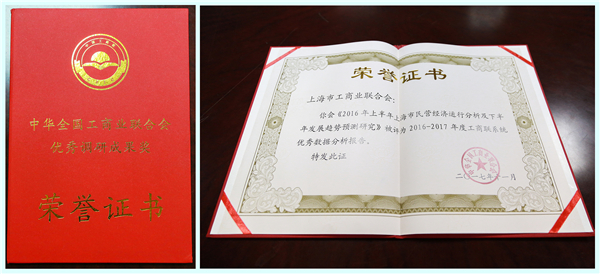 中华全国工商业联合会
优秀调研成果奖
荣誉证书
荣誉证书
上海市工商业联合会：
你会《2016年上半年上海市民营经济运行分析及下半
年发展趋势预测研究》被评为2016-2017年度工商联系统
优秀数据分析报告。
特发此证
二〇一七年十一月